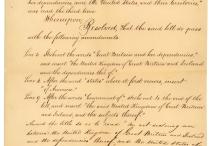 her dependencies and the United States and their territories,"
was read the third time:
Whereupon,
Resolved, That the said bill do pass
with the following amendments
Line 3 Strike out the words "Great Britain and her dependencies,"
and insert "the United Kingdom of Great Britain and Ireland
and the dependencies thereof."
Line 5 After the word "States" where it first occurs, insert
"of America."
the end of the
bill, and insert "the said United Kingdom of Great Britain
and Ireland, and the subjects thereof."
Amend the title so as to read "An act declaring war
between the United Kingdom of Great Britain and Ireland
and the dependencies thereof, and the United States of